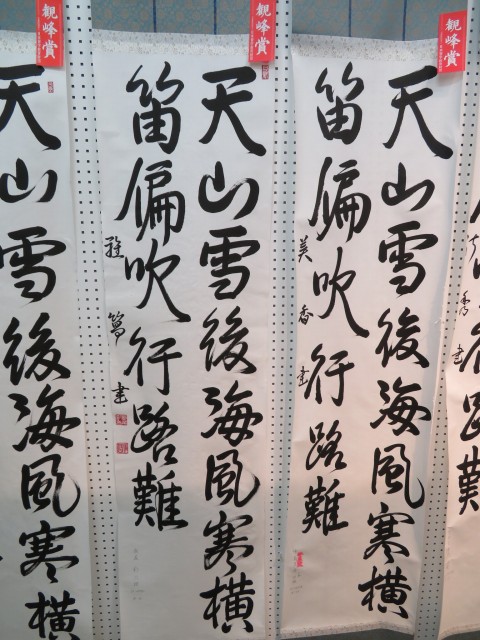 観峰賞
天山雪後海風寒横
笛偏吹行路難
美香書
観峰賞
天山雪後海風寒横
笛偏吹行路難
書
観峰賞
天山雪後海風寒横